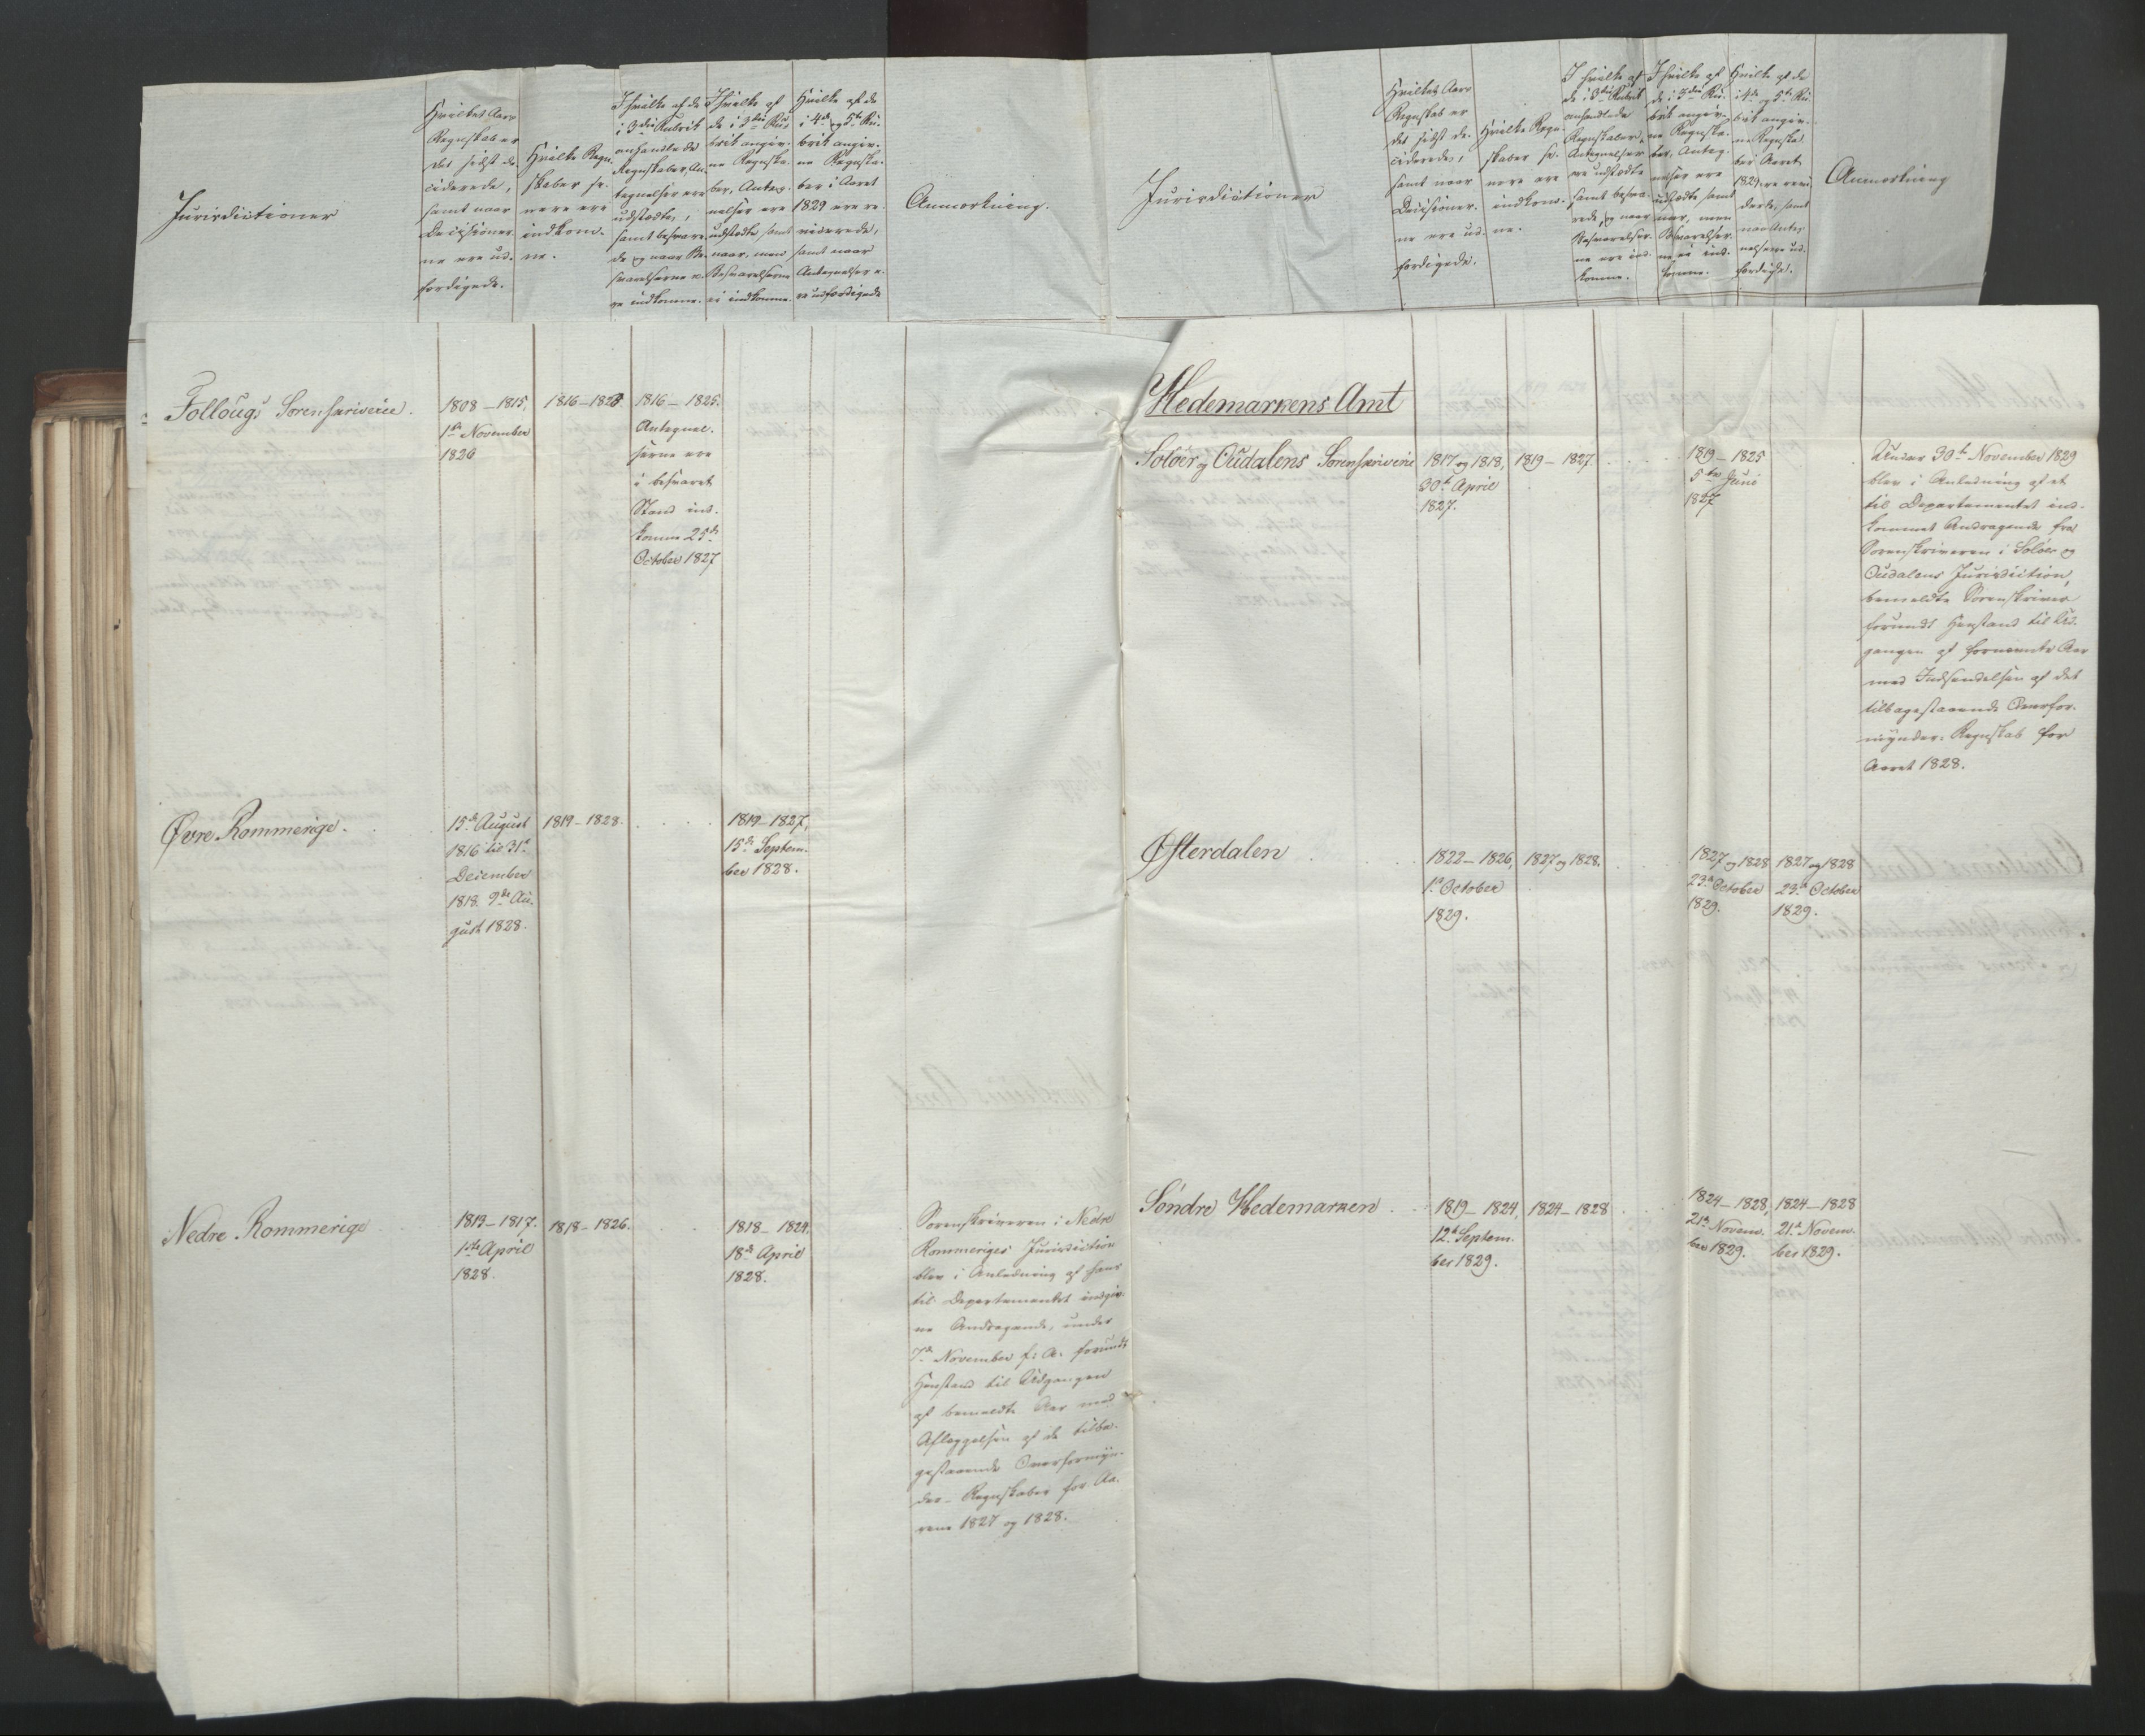 Jurisdictioner
Hvilket Aars
Regnskab er
det sidst de-
ciderede,
samt naar
Decisioner-
ne ere ud-
færdigede.
Hvilke Regn-
skaber se-
nere ere
indkom-
ne.
I hvilke af de
i 3die Rubrik
anførte
Regnskaber, An-
tegnelser ere
udstædte,
samt besvare-
de og naar Be-
svarelserne e-
re indkomne.
I hvilke af
de i 3die Ru-
brik angiv-
ne Regnska-
ber, Anteg-
nelser ere
udstædte samt
naar, men
Besvarelserne
ei indkomne.
Hvilke af de
i 4de og 5te Ru-
brik angiv-
ne Regnska-
ber i Aaret
1829 ere re-
viderede,
samt naar
Antegnelser e-
re udfærdigede
Anmærkning.
Follougs Sorenskriverie.
1808 – 1815,
1ste November
1826
1816 – 1828.
1816 – 1825.
Antegnel-
serne ere
i besvaret
Stand ind-
komne 25de
October 1827
Øvre Rommerige.
15de August
1816 til 31te
December
1818. 9de Au-
gust 1828.
1819 – 1828.
1819 – 1827,
15de Septem-
ber 1828.
Nedre Rommerige
1813 – 1817.
1ste April
1828.
1818 – 1826.
1818 – 1824.
18de April
1828.
Sorenskriveren i Nedre
Rommeriges Jurisdiction
blev i Anledning af hans
til Departementet indgiv-
ne Andragende, under
7de November f: A. forundt
Henstand til Udgangen
af bemeldte Aar med
Aflæggelsen af de tilba-
gestaaende Overformyn-
der-Regnskaber for Aa-
rene 1827 og 1828.
Jurisdictioner
Hvilket Aars
Regnskab er
det sidst de-
ciderede,
samt naar
Decisioner-
ne ere ud-
færdigede.
Hvilke Regn-
skaber se-
nere ere
indkom-
ne.
I hvilke af
de i 3die Rubrik
anførte
Regnskaber,
Antegnelser
ere udstædte
samt besva-
rede, og naar
Besvarelser-
ne ere ind-
komne.
I hvilke af
de i 3die Ru-
brik angiv-
ne Regnska-
ber, Anteg-
nelser ere
udstædte samt
naar, men
Besvarelser-
ne ei ind-
komne.
Hvilke af de
i 4de og 5te Ru-
brik angiv-
ne Regnska-
ber i Aaret
1829 ere revi-
derede, samt
naar Anteg-
nelserne ud-
færdigede.
Anmærkning
Hedemarkens Amt
Soløer og Oudalens Sorenskriverie
1817 og 1818,
30te April
1827.
1819 – 1827.
1819 – 1825
5te Juni
1827
Under 30te November 1829
blev i Anledning af et
til Departementet ind-
kommet Andragende fra
Sorenskriveren i Soløer og
Oudalens Jurisdiction,
bemeldte Sorenskriver
forundt Henstand til Ud-
gangen af fornævnte Aar
med Indsendelsen af det
tilbagestaaende Overfor-
mynder-Regnskab for
Aaret 1828.
Østerdalen
1822 – 1826,
1te October
1829.
1827 og 1828.
1827 og 1828
23de October
1829.
1827 og 1828
23de October
1829.
Søndre Hedemarken
1819 – 1824,
12te Septem-
ber 1829.
1824 – 1828
1824 – 1828,
21de Novem-
ber 1829.
1824 – 1828
21de Novem-
ber 1829.